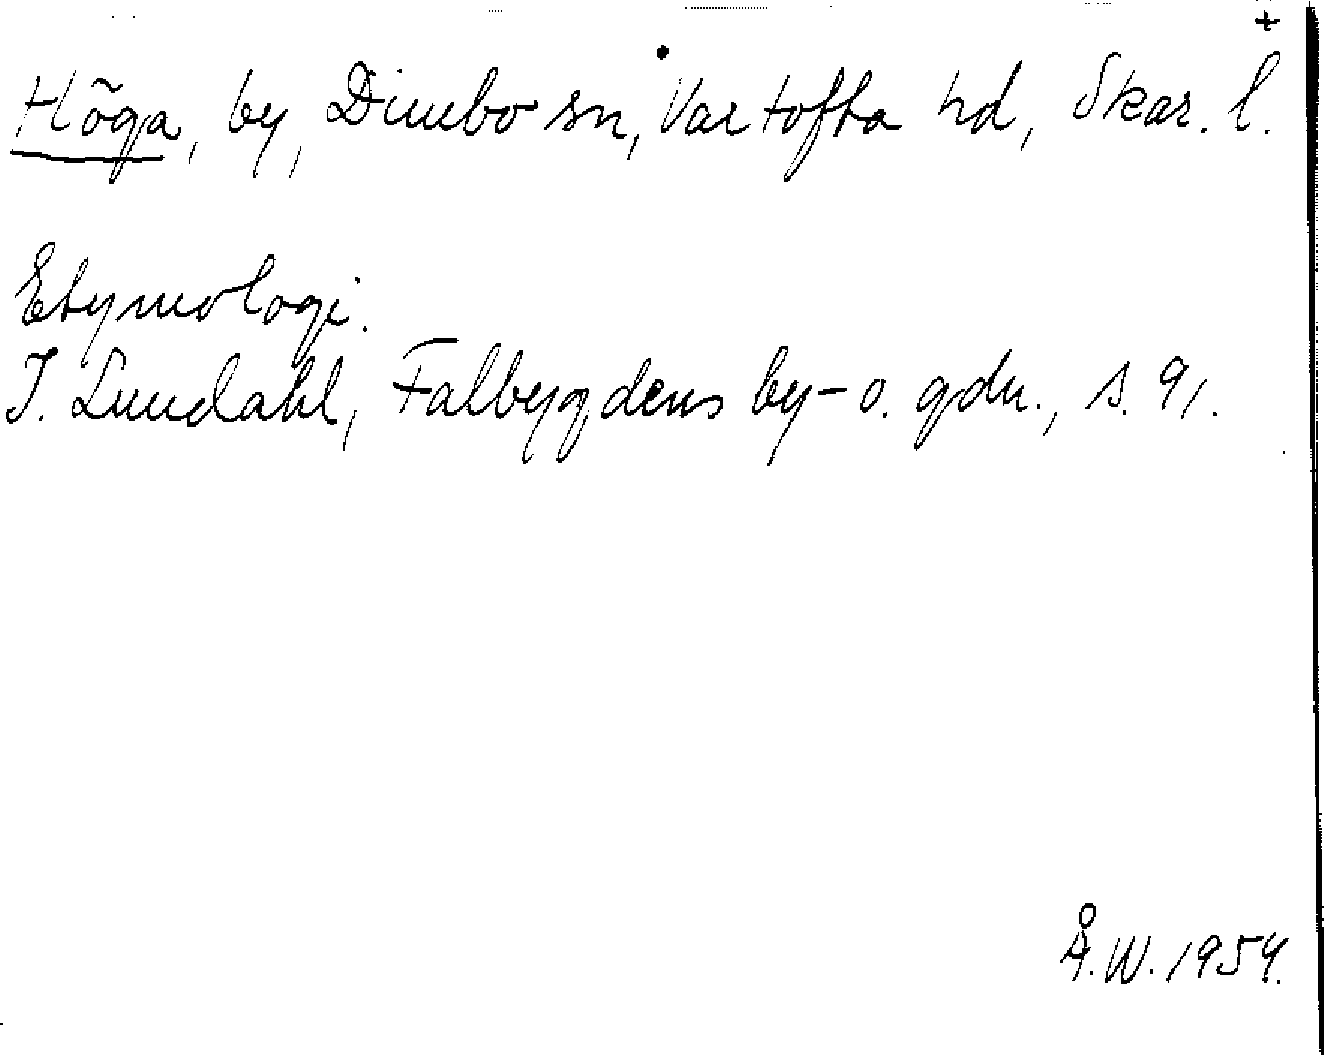 +
Höga, by, Dimbo sn, Vartofta hd, Skar. l.
Etymologi.
I. Lundahl, Falbygdens by- o. gdn., s. 91.
Å.W. 1954.